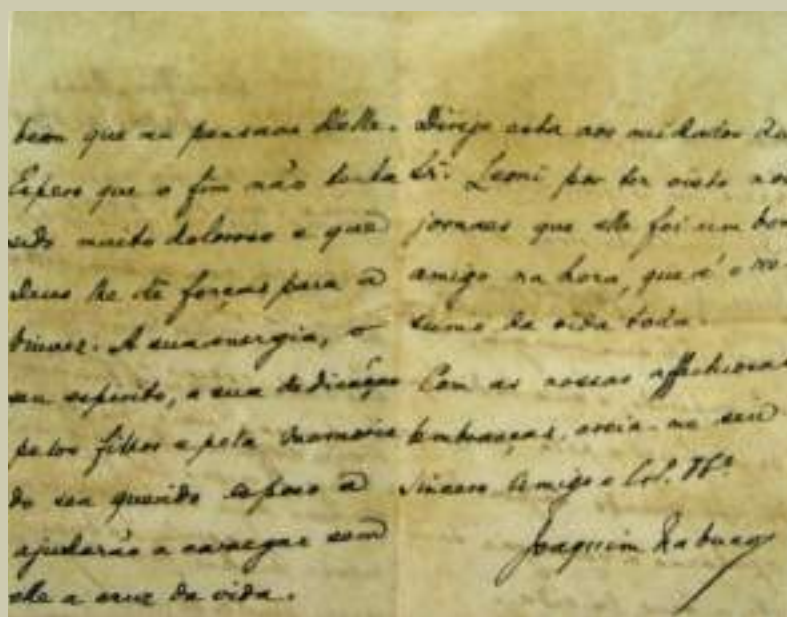 bem que me pensava delle.
Espero que o fim não tenha
sido muito doloroso e que
Deus lhe dê forças para a
viuvez. A sua energia, o
seu espirito, a sua dedicação
pelos filhos e pela memoria
do seu querido esposo a
ajudarão a carregar sem
elle a cruz da vida.
Dirijo esta aos cuidados do
Sr. Leoni por ter visto nos
jornaes que elle foi um bom
amigo na hora, que é o re-
sumo da vida toda.
Com as nossas affectuosas
lembranças, creia-me seu
sincero amigo e
Joaquim Nabuco